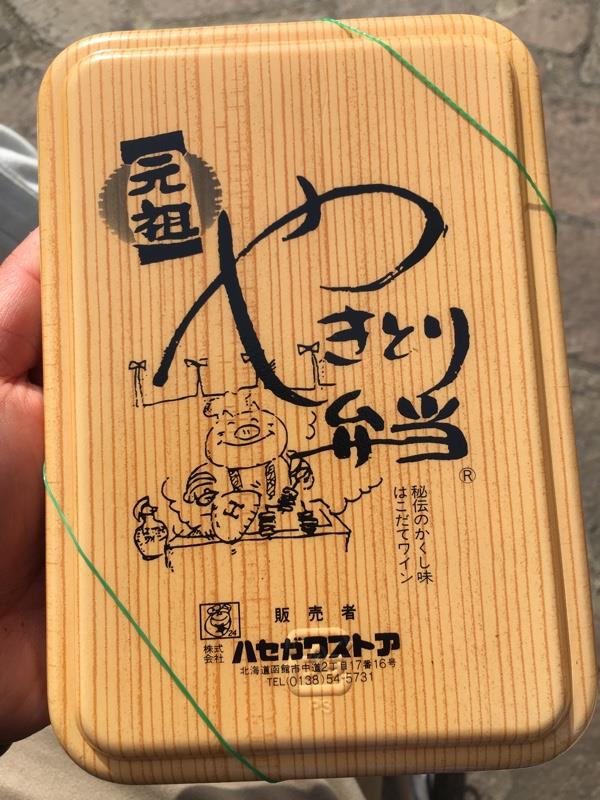 元祖
やきとり
弁当
®
秘伝のかくし味
はこだてワイン
H
24
販売者
株式会社 ハセガワストア
北海道函館市中道2丁目17番16号
TEL(0138)54-5731
PS